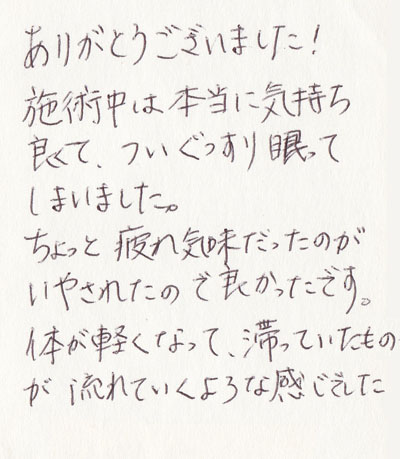 ありがとうございました!
施術中は本当に気持ち
良くて、ついぐっすり眠って
しまいました。
ちょっと疲れ気味だったのが
いやされたので良かったです。
体が軽くなって、滞っていたもの
が流れていくような感じでした